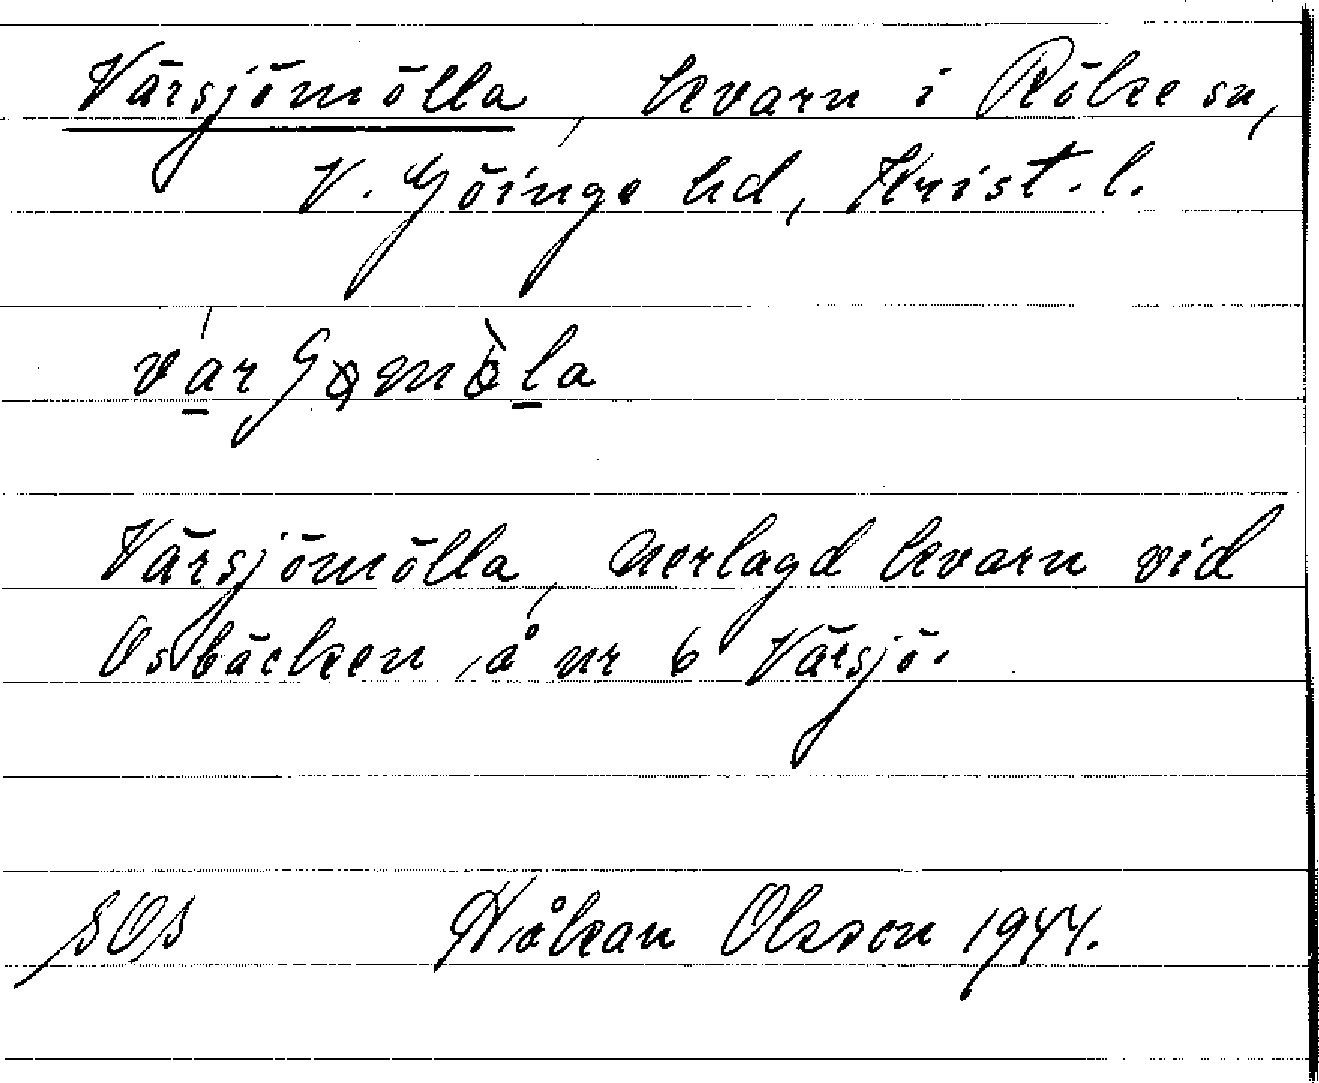 Värsjömölla, kvarn i Röke sn,
V. Göinge hd, Krist. l.
Värsjömölla, nerlagd kvarn vid
Osbäcken, å nr 6 Värsjö.
SOS Håkan Olsson 1944.